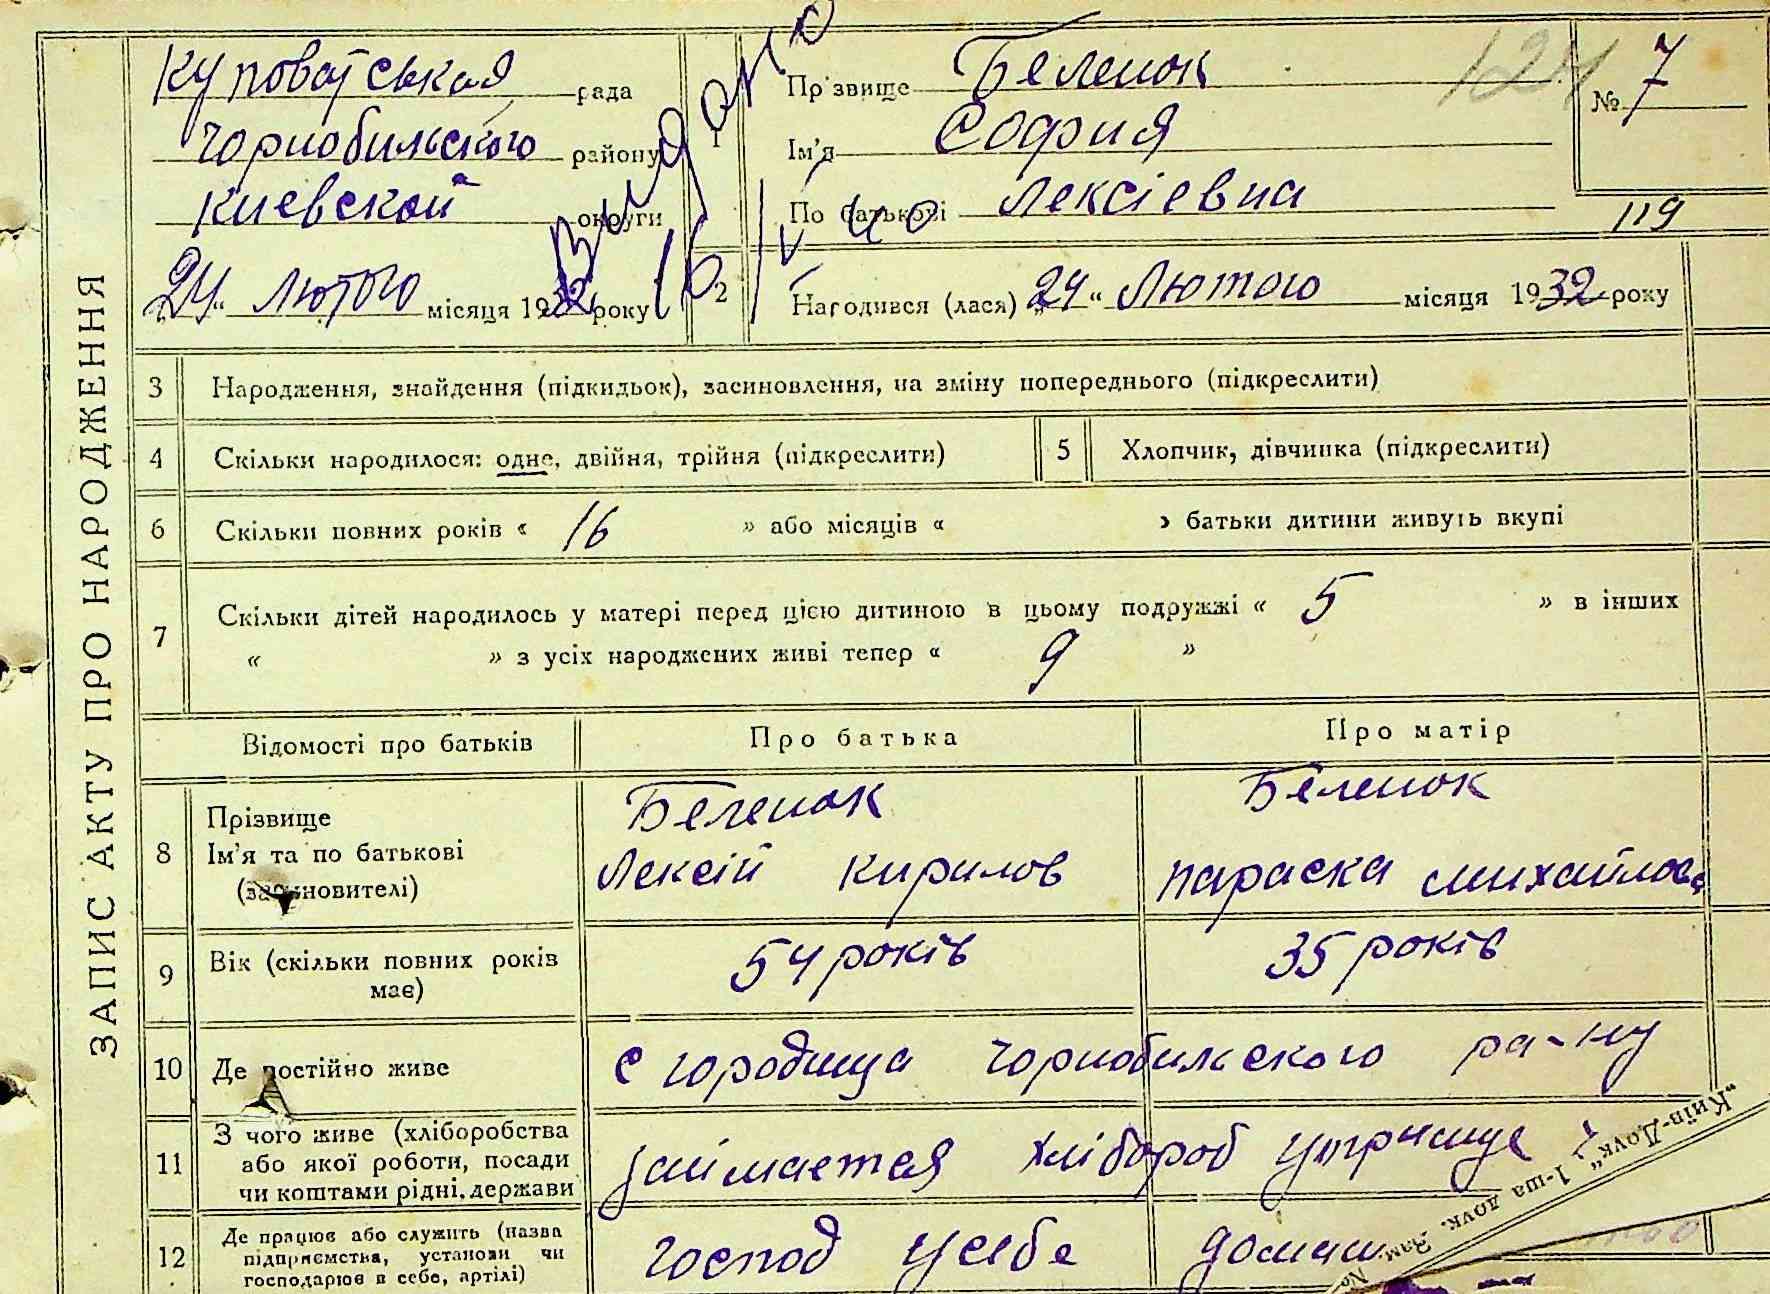 ЗАПИС АКТУ ПРО НАРОДЖЕННЯ
Куповатськая рада
Чорнобильского району
Киевской округи
24 " лютого місяця 1932 року
Видано
1
Прізвище Беленок
Ім'я София
По батькові Лексіевна
№ 7
124
119
2
Народився (лася) „ 24 " Лютого місяця 1932 року
3 Народження, знайдення (підкидьок), засиновлення, на зміну попереднього (підкреслити)
4 Скільки народилося: одне, двійня, трійня (підкреслити)
5 Хлопчик, дівчинка (підкреслити)
6 Скільки повних років « 16 » або місяців « » батьки дитини живуть вкупі
7 Скільки дітей народилось у матері перед цією дитиною в цьому подружжі « 5 » в інших
« » з усіх народжених живі тепер « 9 »
Відомості про батьків Про батька Про матір
8 Прізвище
Ім'я та по батькові
(засиновителі)
Беленок
Лексій Кирилов
Беленок
Параска Михайлов
9 Вік (скільки повних років має)
54 років
35 років
10 Де постійно живе
с Городища Чорнобильского ра-ну
11 З чого живе (хліборобства
або якої роботи, посади
чи коштами рідні, держави
займается хлібороб
12 Де працює або служить (назва
підприємства, установи чи
господарює в себе, артілі)
господ у себе дома
"Київ-Друк" 1-ша друк. Зам. №